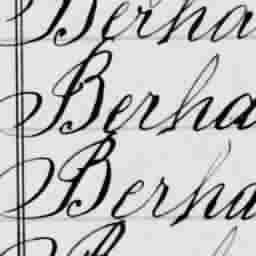 Berha
Berha
Berha
B